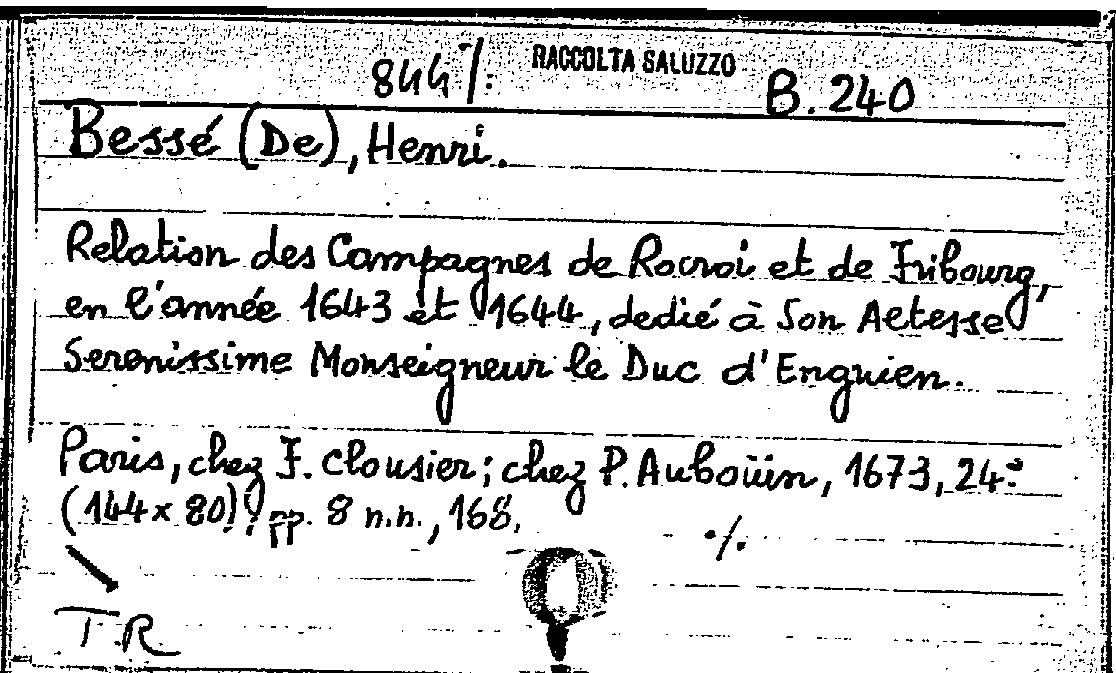 844 ./. RACCOLTA SALUZZO B. 240
Bessé (De), Henri.
Relation des Campagnes de Rocroi et de Fribourg,
en l'année 1643 et 1644, dedié à Son Aetesse
Serenissime Monseigneur le Duc d'Enguien.
Paris, chez F. Clousier; chez P. Auboüin, 1673, 24°
(144 x 80), pp. 8 n.n., 168.
./.
T.R.